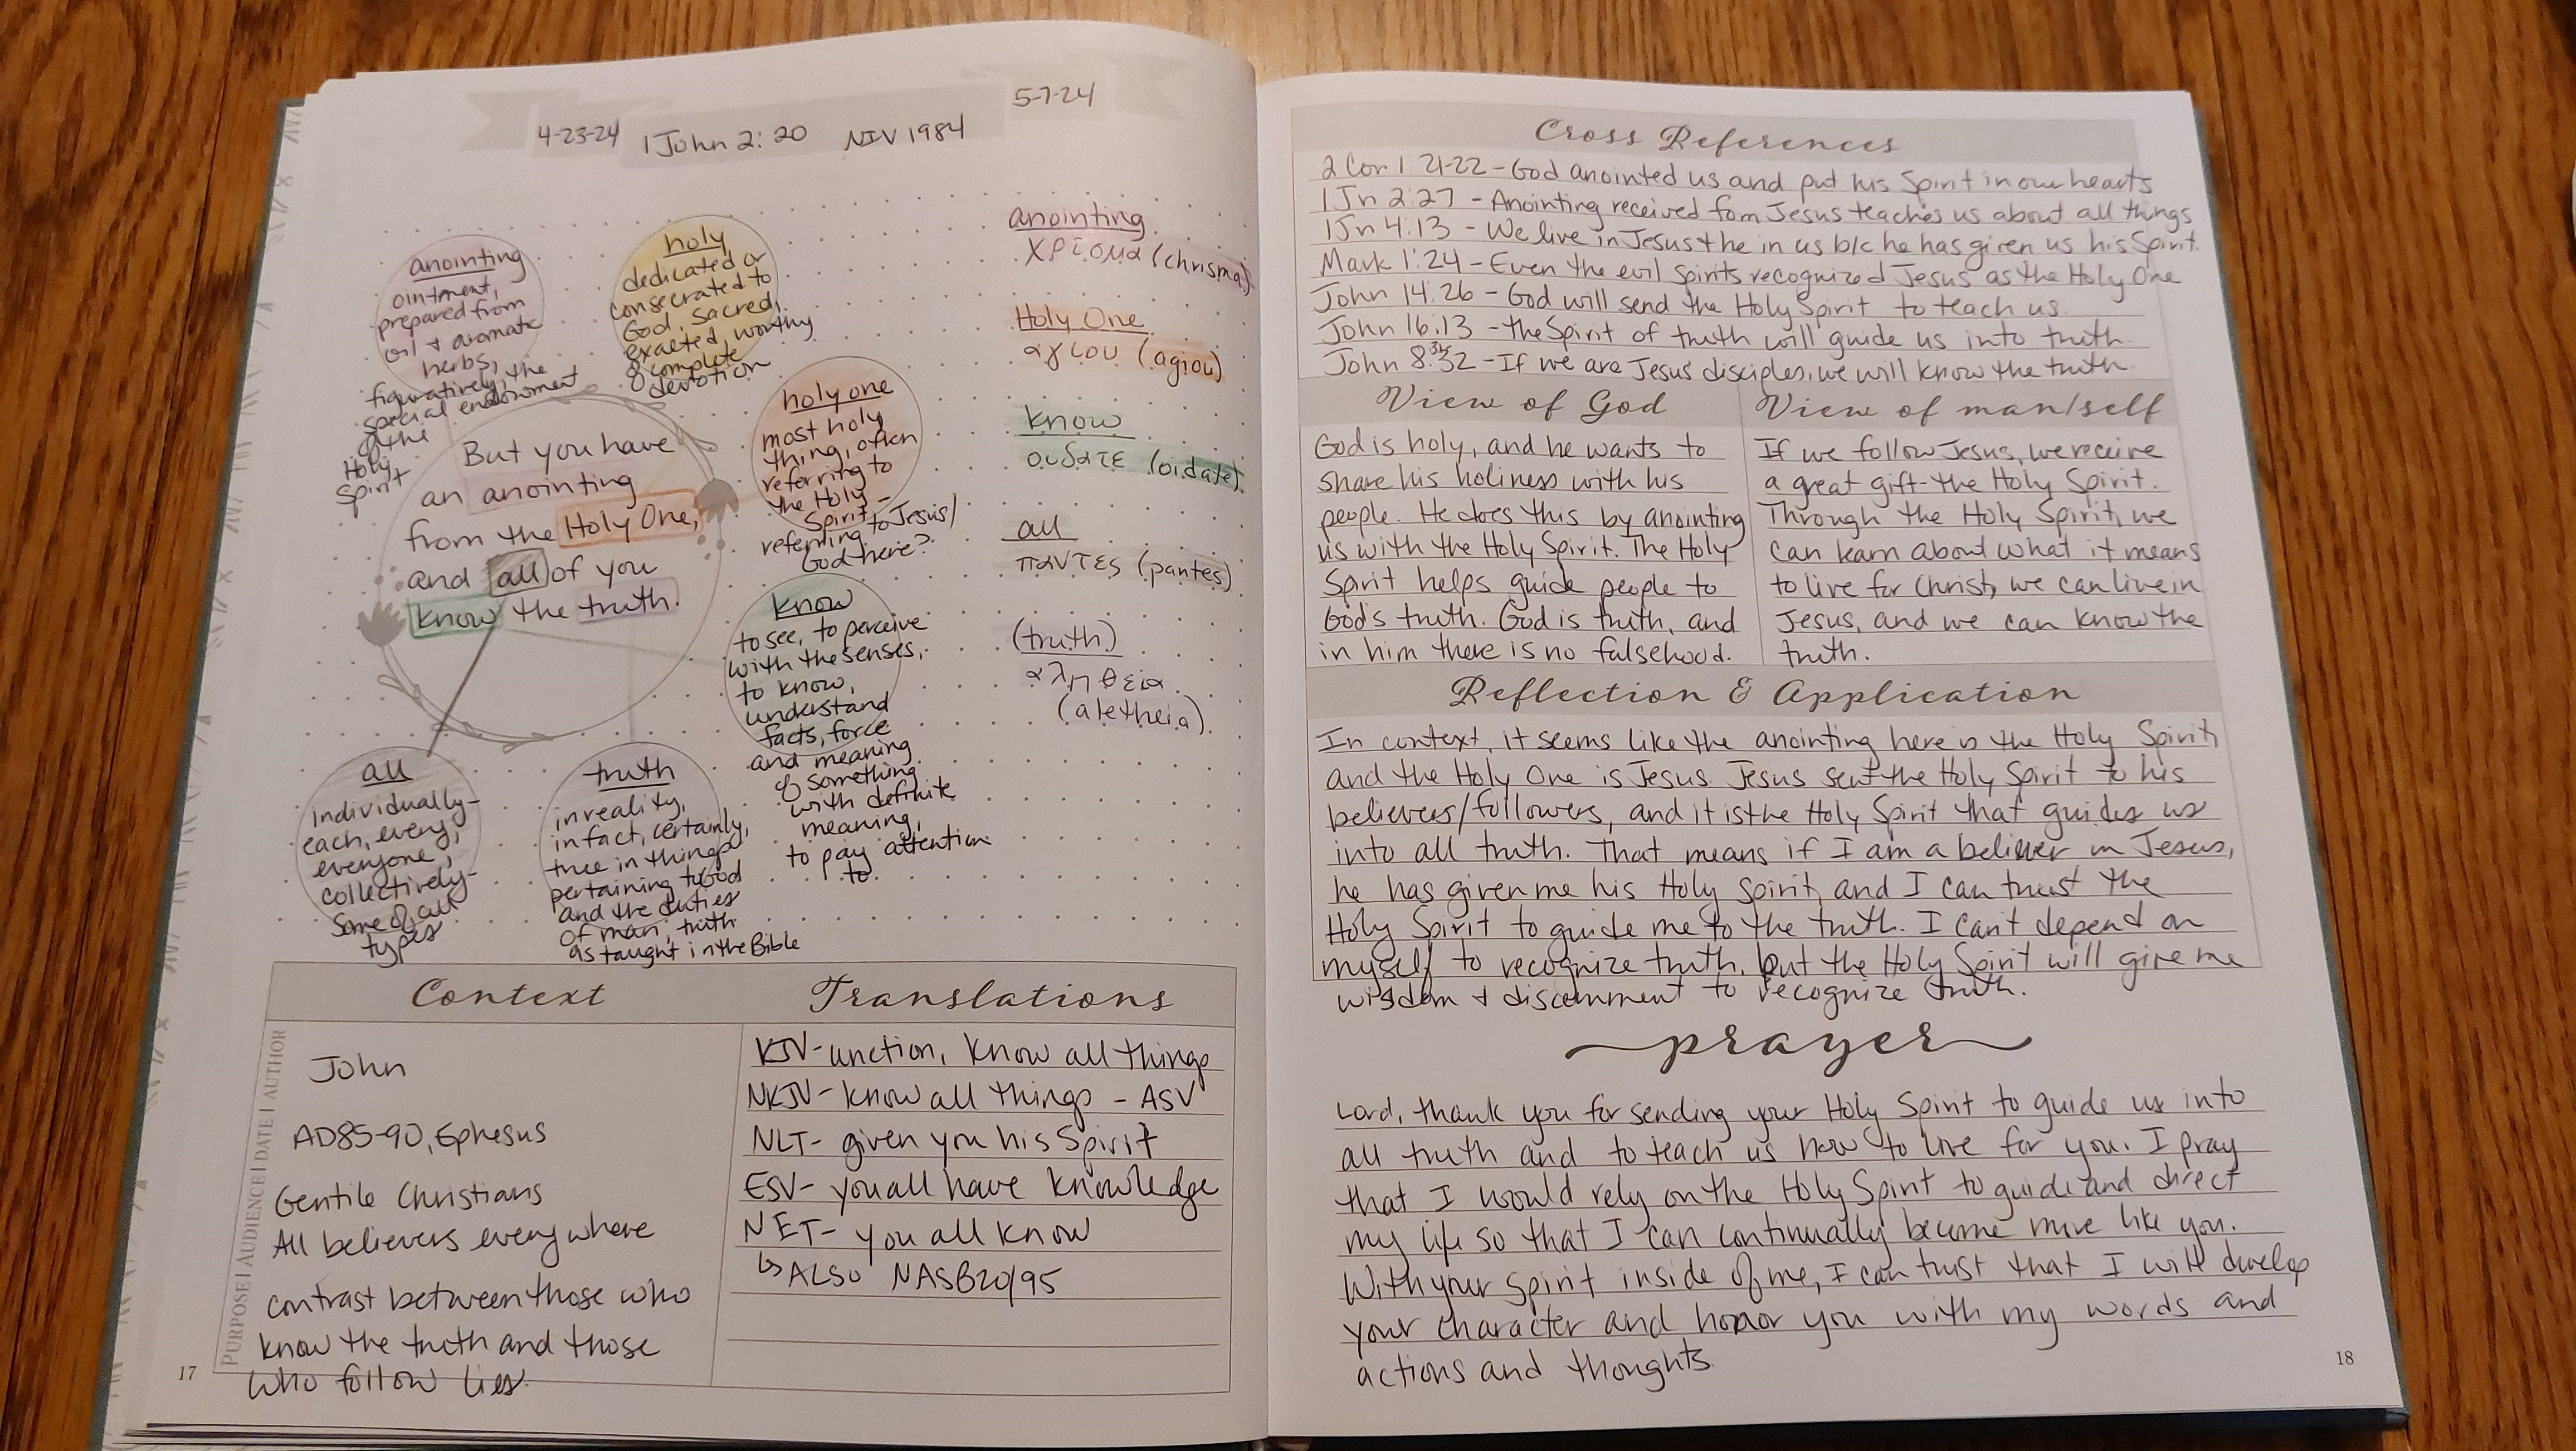 5-7-24
4-23-24 1 John 2:20 NIV 1984
anointing
ointment,
prepared from
oil & aromatic
herbs,
figuratively, the
special endowment
of the
Holy
Spirit
holy
dedicated or
consecrated to
God, sacred,
exalted, worthy
of complete
devotion
holy one
most holy
thing, often
referring to
the Holy
Spirit -
referring to Jesus/
God here?
But you have
an anointing
from the Holy One,
and all of you
know the truth.
know
to see, to perceive
with the senses,
to know,
understand
facts, force
and meaning
of something
with definite
meaning,
to pay attention
to
all
individually-
each, every,
everyone,
collectively-
some of all
types
truth
in reality,
in fact, certainly,
true in things
pertaining to God
and the duties
of man, truth
as taught in the Bible
anointing
χρῖσμα (chrisma)
Holy One
αγιου (agiou)
know
οιδατε (oidate)
all
παντες (pantes)
(truth)
αληθεια
(aletheia)
Context
PURPOSE | AUDIENCE | DATE | AUTHOR
John
AD85-90, Ephesus
Gentile Christians
All believers everywhere
contrast between those who
know the truth and those
who follow lies.
Translations
KJV- unction, know all things
NKJV- know all things - ASV
NLT- given you his Spirit
ESV- you all have knowledge
NET- you all know
↳ ALSO NASB20/95
17
Cross References
2 Cor 1:21-22 - God anointed us and put his Spirit in our hearts
1 Jn 2:27 - Anointing received fom Jesus teaches us about all things
1 Jn 4:13 - We live in Jesus & he in us b/c he has given us his Spirit.
Mark 1:24 - Even the evil spirits recognized Jesus as the Holy One
John 14:26 - God will send the Holy Spirit to teach us
John 16:13 - the Spirit of truth will guide us into truth.
John 8:31-32 - If we are Jesus' disciples, we will know the truth.
View of God
God is holy, and he wants to
share his holiness with his
people. He does this by anointing
us with the Holy Spirit. The Holy
Spirit helps guide people to
God's truth. God is truth, and
in him there is no falsehood.
View of man/self
If we follow Jesus, we receive
a great gift-the Holy Spirit.
Through the Holy Spirit, we
can learn about what it means
to live for Christ, we can live in
Jesus, and we can know the
truth.
Reflection & Application
In context, it seems like the anointing here is the Holy Spirit,
and the Holy One is Jesus. Jesus sent the Holy Spirit to his
believers/followers, and it is the Holy Spirit that guides us
into all truth. That means if I am a believer in Jesus,
he has given me his Holy Spirit, and I can trust the
Holy Spirit to guide me to the truth. I can't depend on
myself to recognize truth, but the Holy Spirit will give me
wisdom & discernment to recognize truth.
prayer
Lord, thank you for sending your Holy Spirit to guide us into
all truth and to teach us how to live for you. I pray
that I would rely on the Holy Spirit to guide and direct
my life so that I can continually become more like you.
With your Spirit inside of me, I can trust that I will develop
your character and honor you with my words and
actions and thoughts.
18